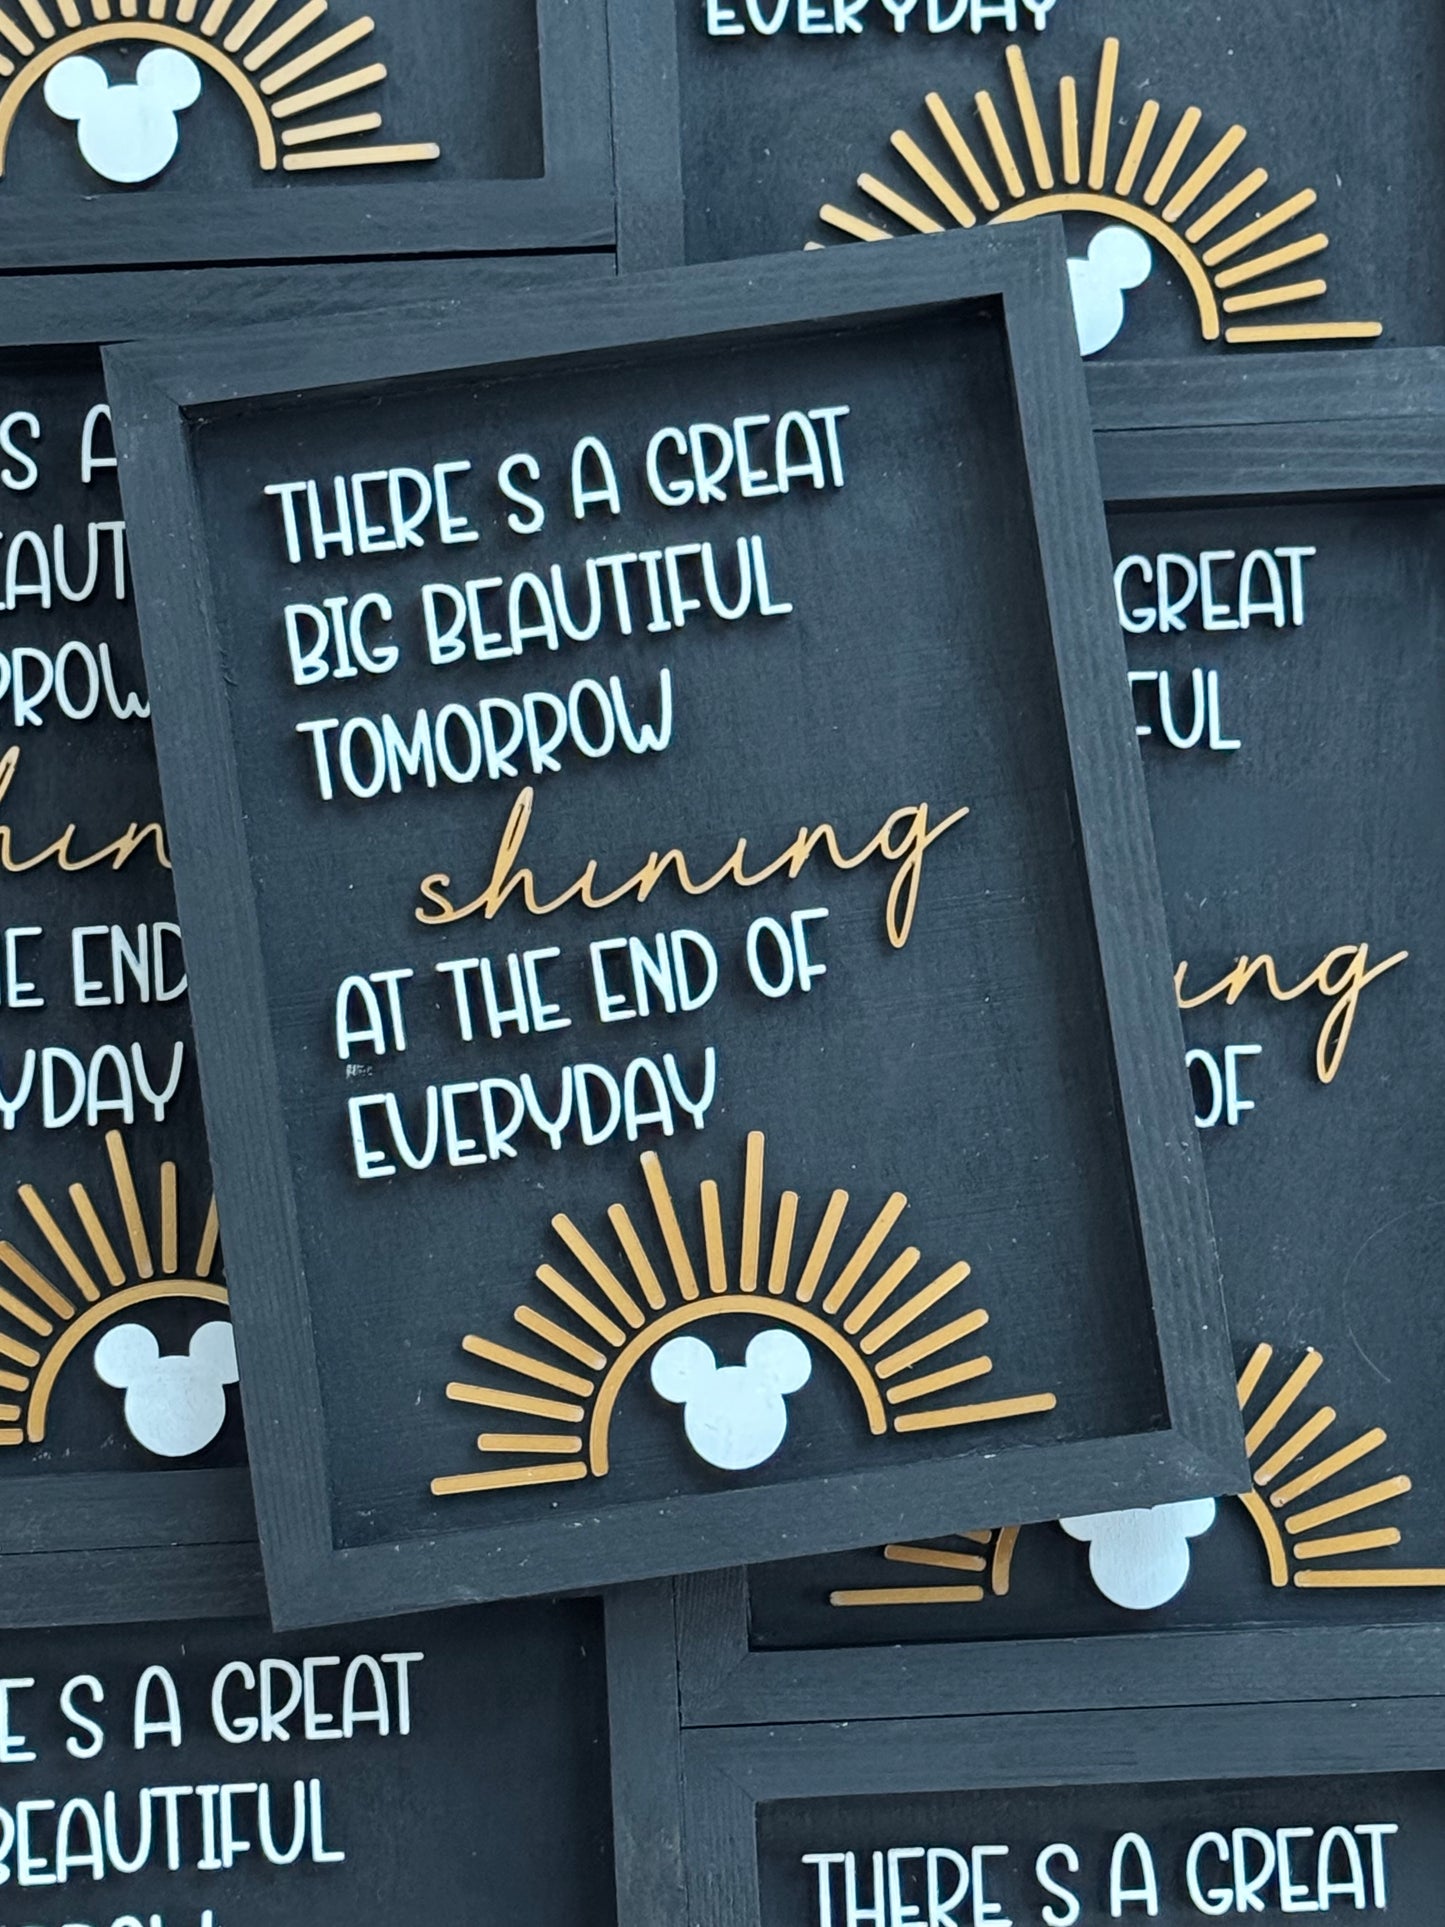 EVERYDAY
THERE S A GREAT
BIG BEAUTIFUL
TOMORROW
shining
AT THE END OF
EVERYDAY
S A
EAUT
RROW
hin
E END
YDAY
GREAT
FUL
ing
OF
E S A GREAT
BEAUTIFUL
THERE S A GREAT